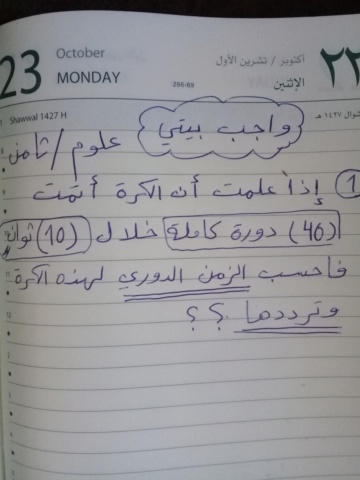 23
October
MONDAY
أكتوبر / تشرين الأول
الإثنين
٢٣
Shawwal 1427 H
شوال ١٤٢٧ هـ
واجب بيتي
علوم / ثامن
1 إذا علمت أن الكرة أتمت
(40) دورة كاملة خلال (10) ثوان
فاحسب الزمن الدوري لهذه الكرة
وترددها ؟ ؟